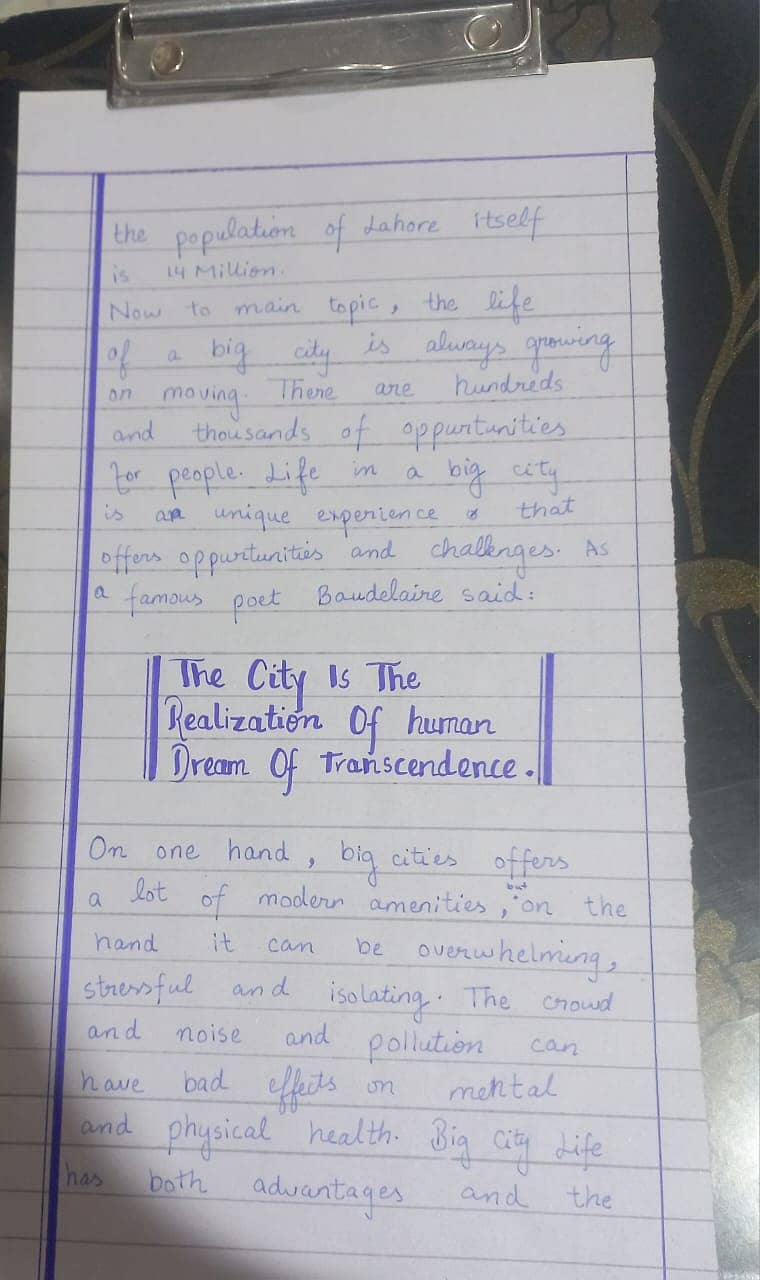 the population of Lahore itself
is 14 Million.
Now to main topic, the life
of a big city is always growing
on moving. There are hundreds
and thousands of oppurtunities
for people. Life in a big city
is an unique experience that
offers oppurtunities and challenges. As
a famous poet Baudelaire said:
The City Is The
Realization Of human
Dream Of Transcendence.
On one hand, big cities offers
a lot of modern amenities, but on the
hand it can be overwhelming,
stressful and isolating. The crowd
and noise and pollution can
have bad effects on mental
and physical health. Big City Life
has both advantages and the